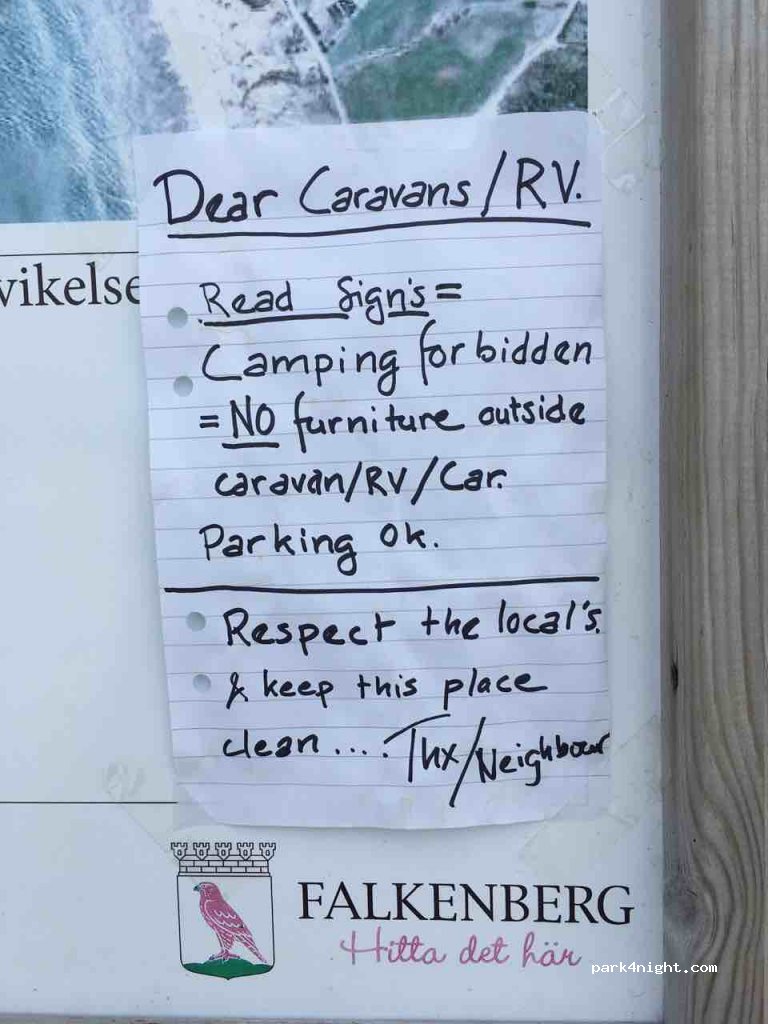 vikelse
Dear Caravans/RV.
Read Sign's =
Camping forbidden
= NO furniture outside
caravan/RV/Car.
Parking Ok.
Respect the local's.
& keep this place
clean .... Thx/Neighbour
FALKENBERG
Hitta det här
park4night.com